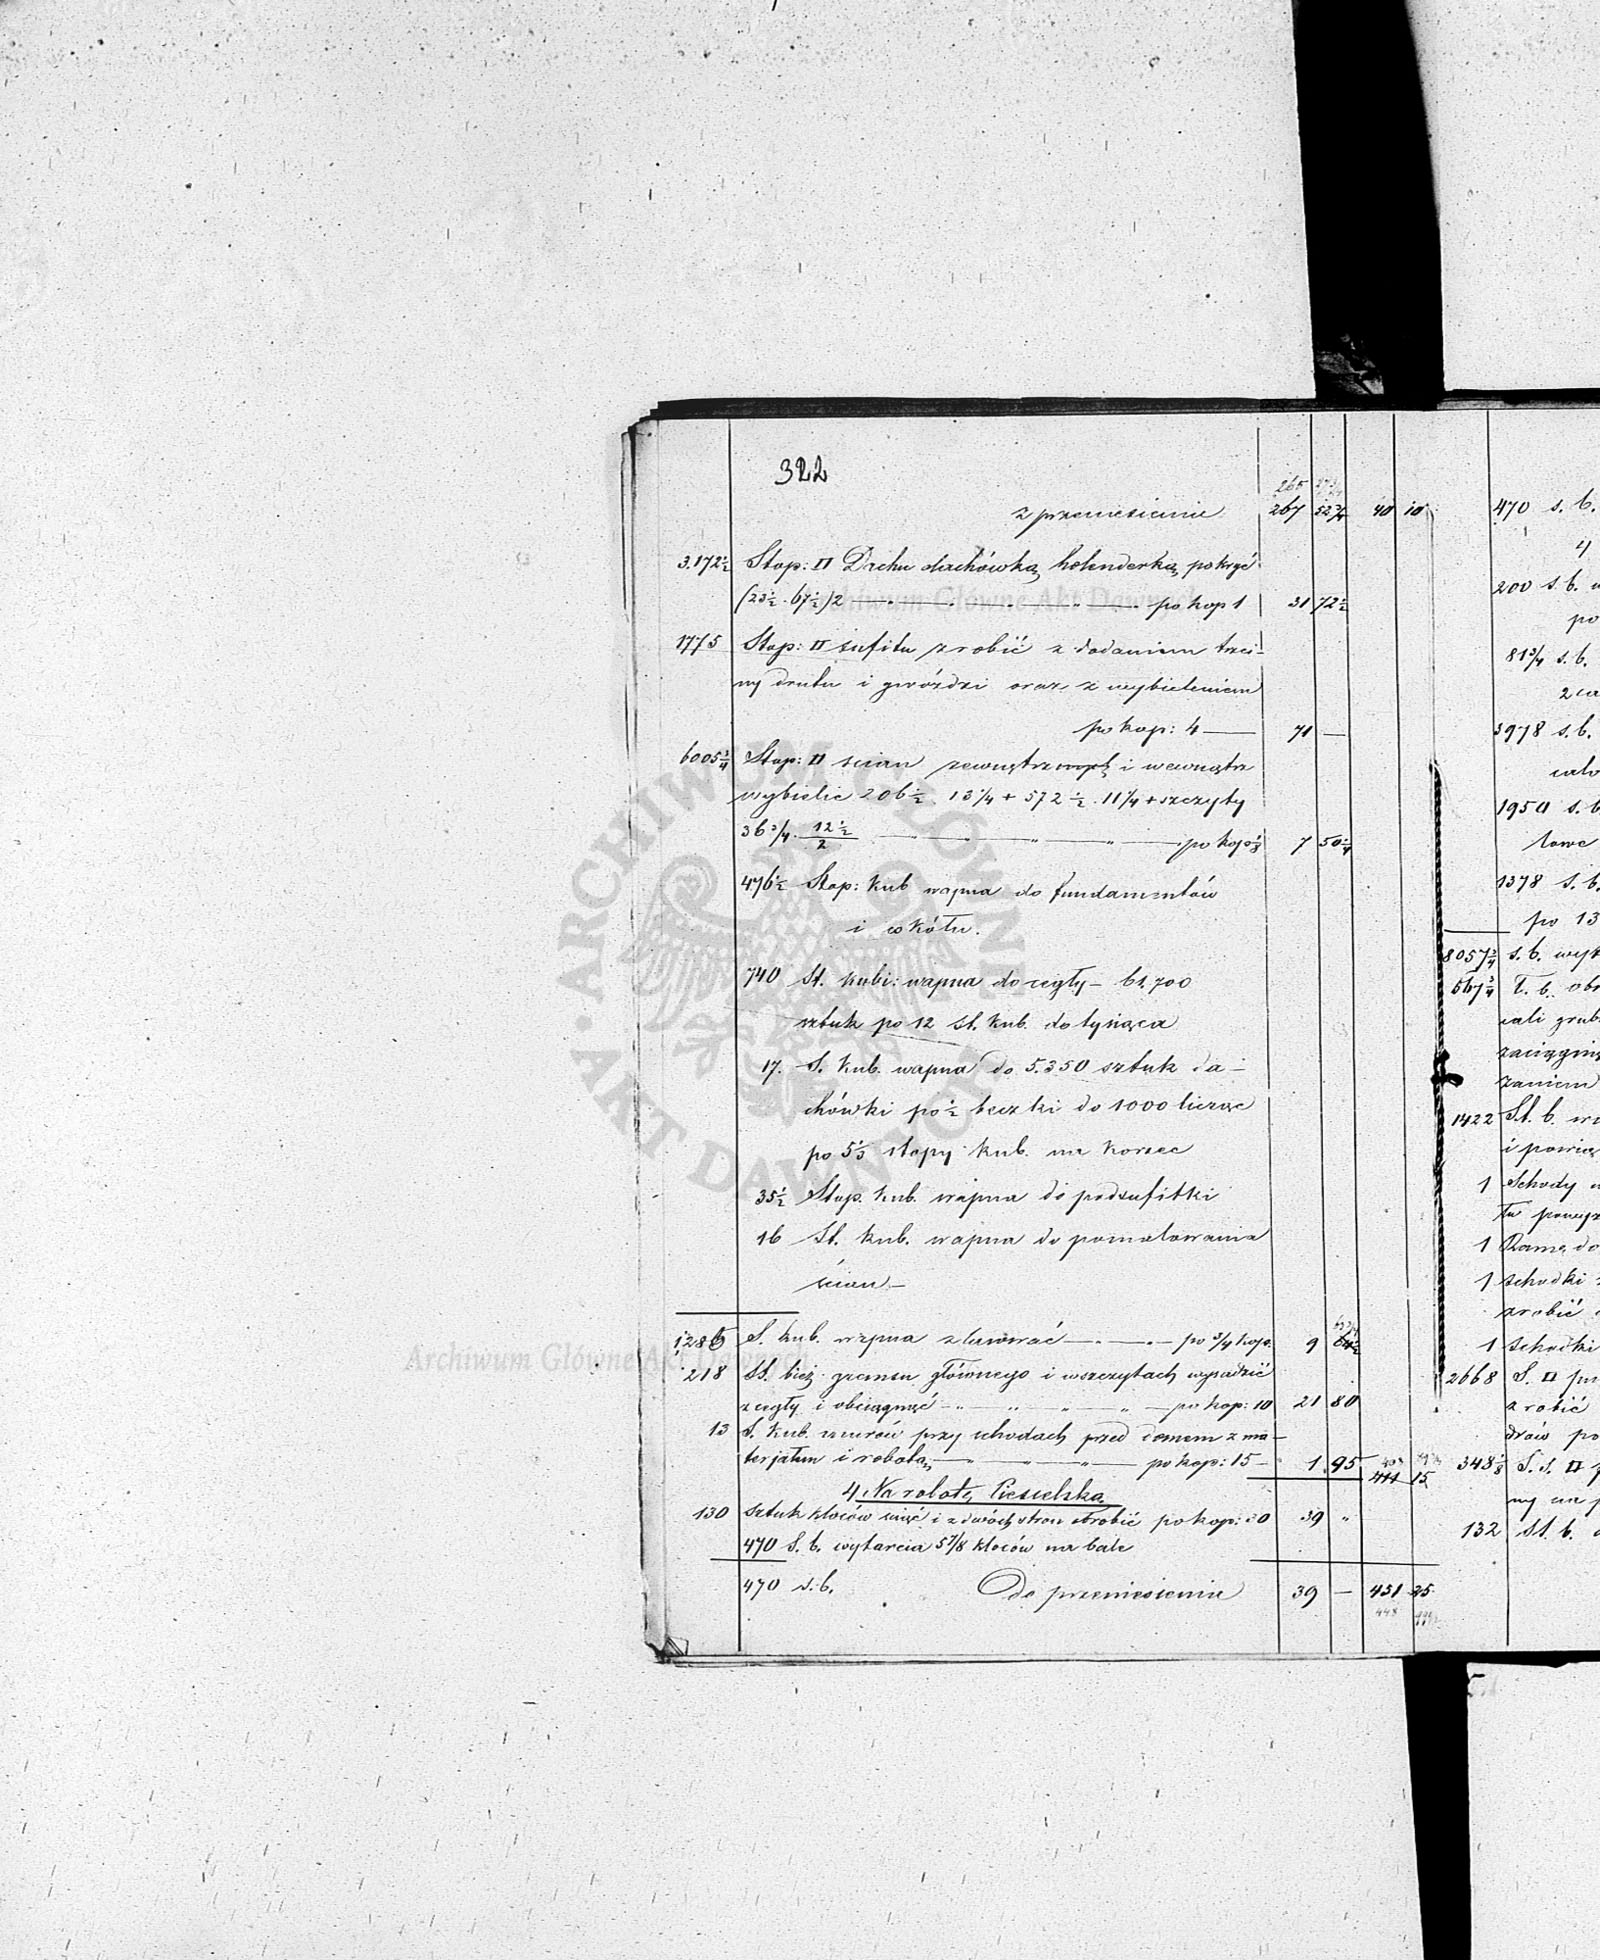 322
z przeniesienia 267 52 3/4 40 10
3.172 1/2 Stop: □ Dachu dachówką holenderką pokryć
(23 1/2 . 67 1/2) 2 — „ — „ — „ — po kop 1 31 72 1/2
1775 Stop: □ sufitu zrobić z dodaniem trzci-
ny drutu i gwóździ oraz z wybieleniem
po kop: 4 — 71 —
6005 3/4 Stop: □ ścian zewnątrz i wewnątrz
wybielić 206 1/2 . 13 1/4 + 572 1/2 . 11 1/4 + szczyty
36 3/4 . 12 1/2 / 2 — „ — „ — po kop 1/8 7 50 1/4
476 1/2 Stop: kub wapna do fundamentów
i cokółu.
740 St. kubi: wapna do cegły — 61.700
sztuk po 12 st. kub. do tysiąca
17. S. kub. wapna do 5.350 sztuk da-
chówki po 1/2 beczki do 1000 licząc
po 5 1/3 stopy kub. na korzec
35 1/2 Stop. kub. wapna do podsufitki
16 St. kub. wapna do pomalowania
ścian —
1285 S. kub. wapna zlasować — „ — „ — po 3/4 kop. 9 64 1/2
218 St. bież. gzemsu głównego i w szczytach wysadzić
z cegły i obciągnąć — „ „ „ „ — po kop: 10 21 80
13 S. kub. murów przy schodach przed domem z ma-
terjałem i robotą — „ — „ — po kop: 15 — 1 95 411 15
4 Na robotę Ciesielską
130 Sztuk kloców ściąć i z dwóch stron obrobić po kop: 30 39 „
470 S. b. wytarcia 5 7/8 kloców na bale
470 s. b. Do przeniesienia 39 — 451 25
470 s. b.
4
200 s. b.
po
81 3/4 s. b.
3978 s. b.
1950 s. b
towe
1378 s. b.
po 13
8057 3/4 s. b.
567 3/4 T. b.
cali grub
zaciągnię
zaniem
1422 St. b.
i powią
1 Schody
1 Ramę do
1 schodki
zrobić
1 schodki
2668 S. □
zrobić
drów po
348 1/8 S. s. □
ny na
132 St. b.
ARCHIWUM GŁÓWNE AKT DAWNYCH
Archiwum Główne Akt Dawnych
Archiwum Główne Akt Dawnych